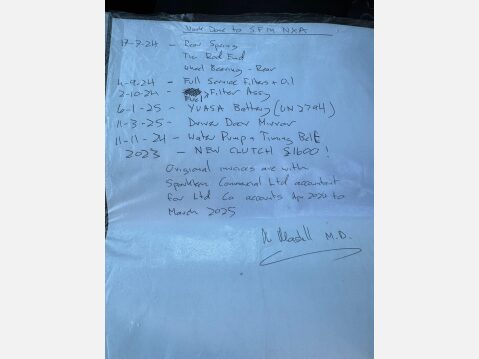 Work Done to SFM NXA
17-7-24 - Rear Spring
Tie Rod End
Wheel Bearing - Rear
4-9-24 - Full Service Filters + Oil
2-10-24 - Fuel Filter Assy
6-1-25 - YUASA Battery (UN2794)
11-3-25 - Driver Door Mirror
11-11-24 - Water Pump + Timing Belt
2023 - NEW CLUTCH £1600!
Original invoices are with
Commercial Ltd accountant
for Ltd Co accounts Apr 2024 to
March 2025
M.D.